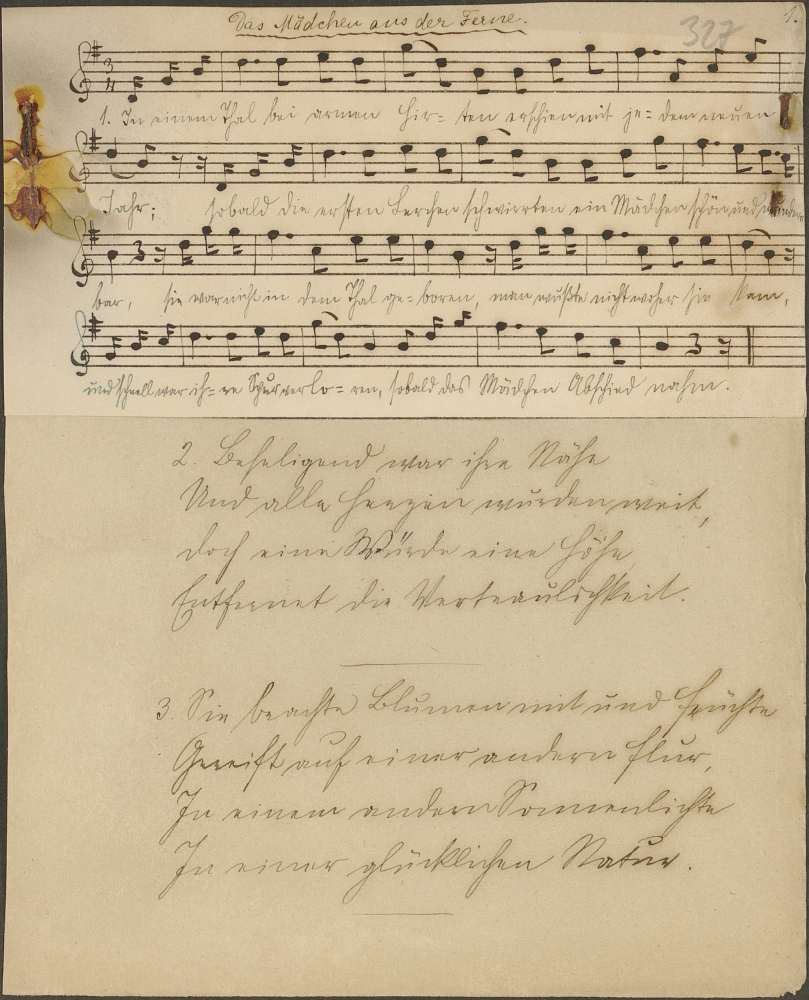 Das Mädchen aus der Ferne.
327
1.
1. In einem Thal bei armen Hir= ten erschien mit je= dem neuen
Jahr; sobald die ersten Lerchen schwirrten ein Mädchen schön und wunder
bar, sie war nicht in dem Thal ge= boren, man wußte nicht woher sie kam,
und schnell war ih= re Spur verlo= ren, sobald das Mädchen Abschied nahm.
2. Beseligend war ihre Nähe
Und alle Herzen wurden weit,
doch eine Würde eine Höhe
Entfernet die Vertraulichkeit.
3. Sie brachte Blumen mit und Früchte
Gereift auf einer andern Flur,
In einem andern Sonnenlichte
In einer glücklichen Natur.